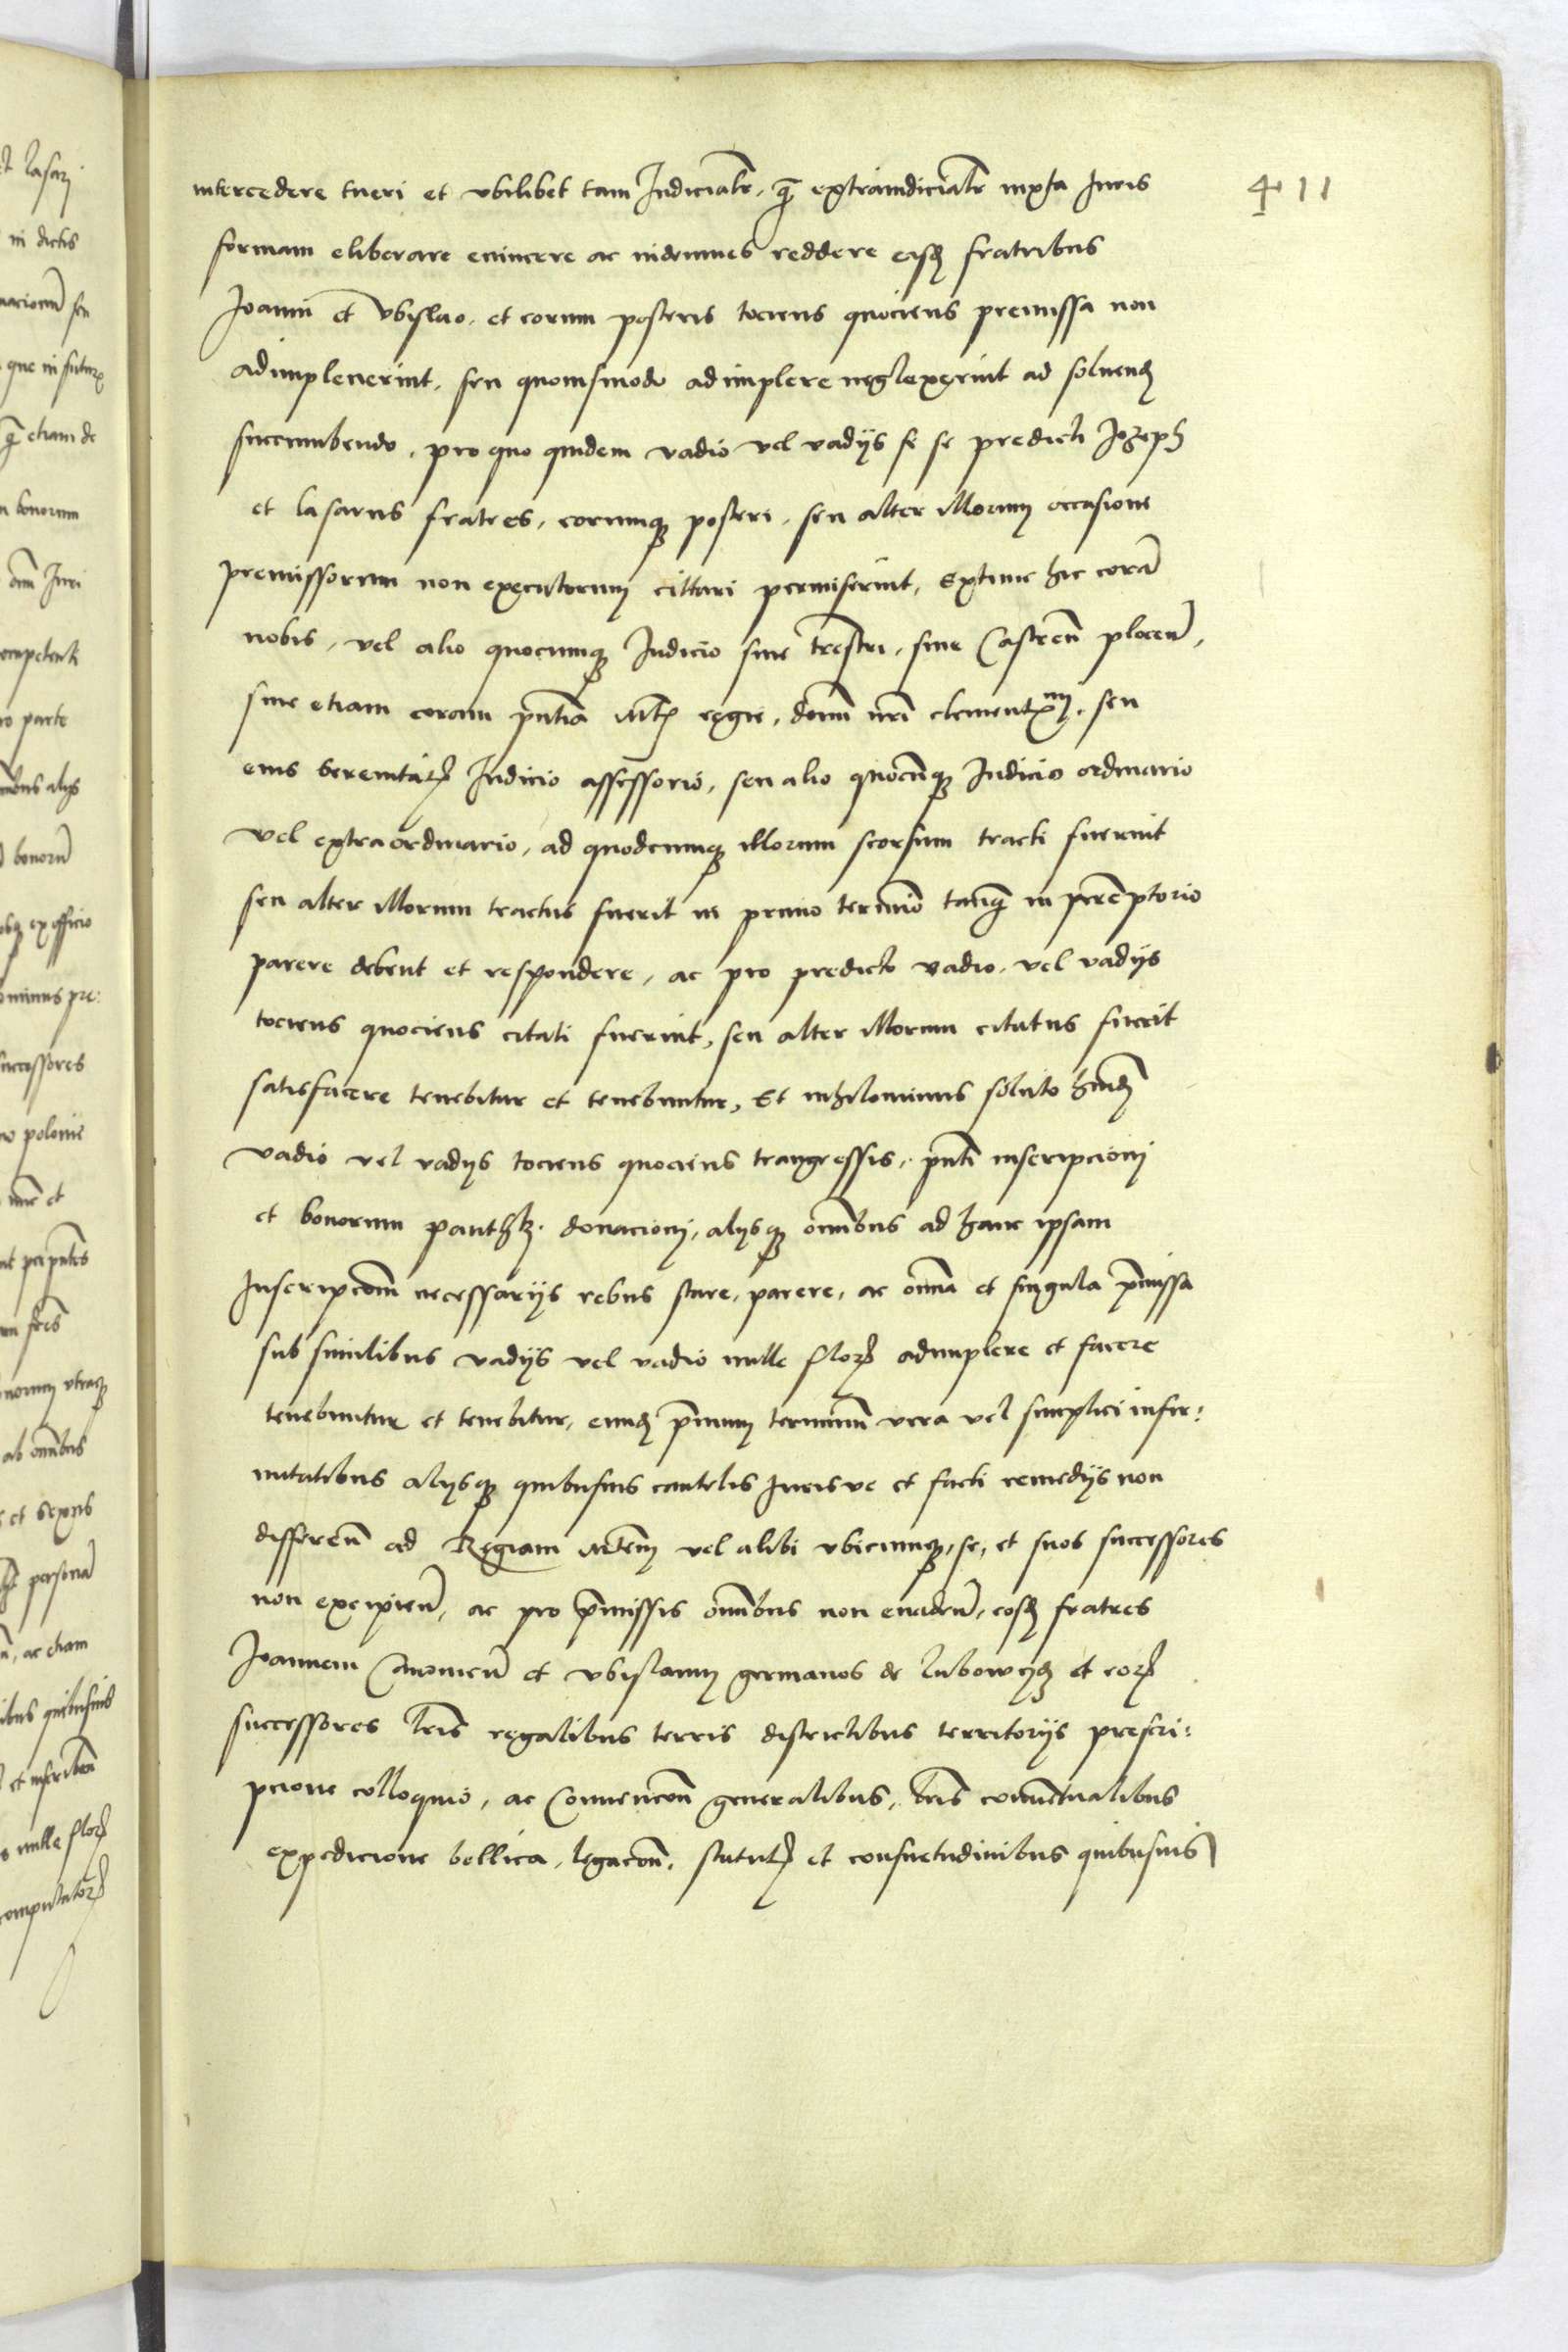 411
intercedere tueri et vbilibet tam Iudicialr, q̃ extraiudicialr iuxta Iuris
formam eliberare euincere ac indemnes reddere eisd fratribus
Joanni et Vbislao, et eorum posteris tociens quociens premissa non
adimpleuerint, seu quouismodo adimplere neglexerint ad soluend
succumbendo, pro quo quidem vadio vel vadijs si se predicti Jozeph
et lasarus fratres, eorumq posteri, seu alter illorum occasione
premissorum non executorum cittari permiserint, Extunc hic corã
nobis, vel alio quocumq Iudicio siue trestri, siue Castren plocen,
siue etiam coram pntia Mtis regie, domi nri clementxmi, seu
eius Serenitatis Iudicio assessorio, seu alio quocũq Iudicio ordinario
vel extraordinario, ad quodcumq illorum seorsum tracti fuerint
seu alter illorum tractus fuerit in primo termio tanq̃ in perẽptorio
parere debent et respondere, ac pro predicto vadio, vel vadijs
tociens quociens citati fuerint, seu alter illorum citatus fuerit
satisfacere tenebitur et tenebuntur, Et nihilominus soluto hmoi
vadio vel vadijs tociens quociens transgressis, pnti inscripcioni
et bonorum donacioni, alijsq omibus ad hanc ipsam
Inscripcom necessarijs rebus stare, parere, ac omia et singula pmissa
sub similibus vadijs vel vadio mille flor adimplere et facere
tenebuntur et tenebitur, eund primum terminum vera vel simplici infir:
mitatibus alijsq quibusuis cautelis Iurisve et facti remedijs non
differen ad Regiam Mtem vel alibi vbicumq, se, et suos successores
non excipien, ac pro pmissis omibus non euaden, eosd fratres
Joannem Canonicu et Vbislaum germanos de lubowydz et eor
successores lris regalibus terris districtibus territorijs prescri:
pcione colloquio, ac Conuencon generalibus, lris conuentualibus
expedicione bellica, legacon, statut et consuetudinibus quibusuis